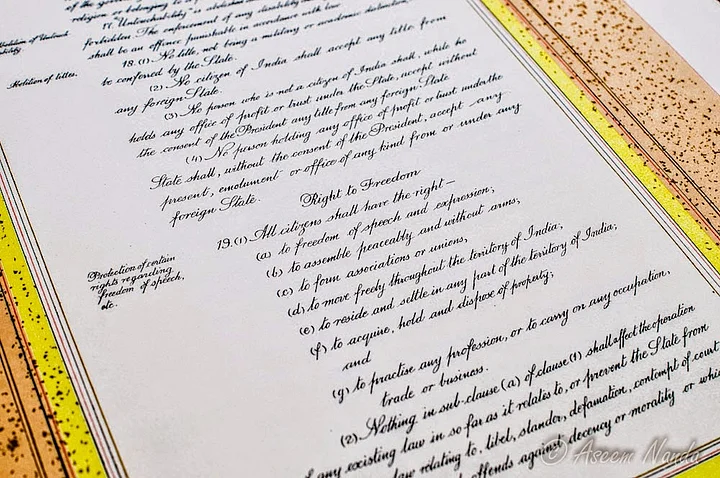 religion or belonging to a
17. "Untouchability" is abolished
forbidden. The enforcement of any disability
shall be an offence punishable in accordance with law.
18. (1) No title, not being a military or academic distinction,
be conferred by the State.
(2) No citizen of India shall accept any title from
any foreign State.
(3) No person who is not a citizen of India shall, while he
holds any office of profit or trust under the State, accept without
the consent of the President any title from any foreign State.
(4) No person holding any office of profit or trust under the
State shall, without the consent of the President, accept any
present, emolument or office of any kind from or under any
foreign State.
Abolition of Untouch
ability.
Abolition of titles.
Right to Freedom
Protection of certain
rights regarding
freedom of speech,
etc.
19. (1) All citizens shall have the right—
(a) to freedom of speech and expression;
(b) to assemble peaceably and without arms;
(c) to form associations or unions;
(d) to move freely throughout the territory of India;
(e) to reside and settle in any part of the territory of India;
(f) to acquire, hold and dispose of property;
and
(g) to practise any profession, or to carry on any occupation,
trade or business.
(2) Nothing in sub-clause (a) of clause (1) shall affect the operation
of any existing law in so far as it relates to, or prevent the State from
law relating to, libel, slander, defamation, contempt of court
offends against decency or morality or whic
© Aseem Nanda